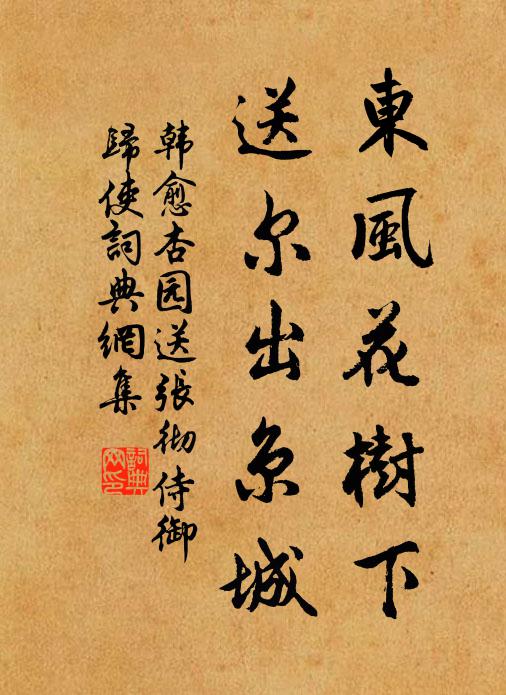 東風花樹下
送尔出京城
韩愈杏园送張彻侍御
歸使詞典網集
詞典網印